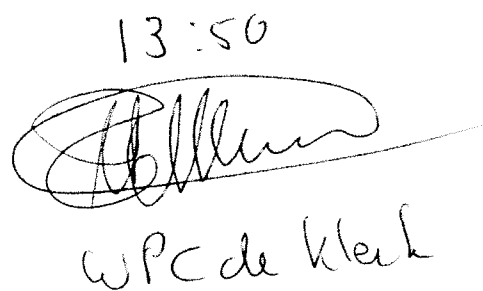 13:50
WPC de Klerk